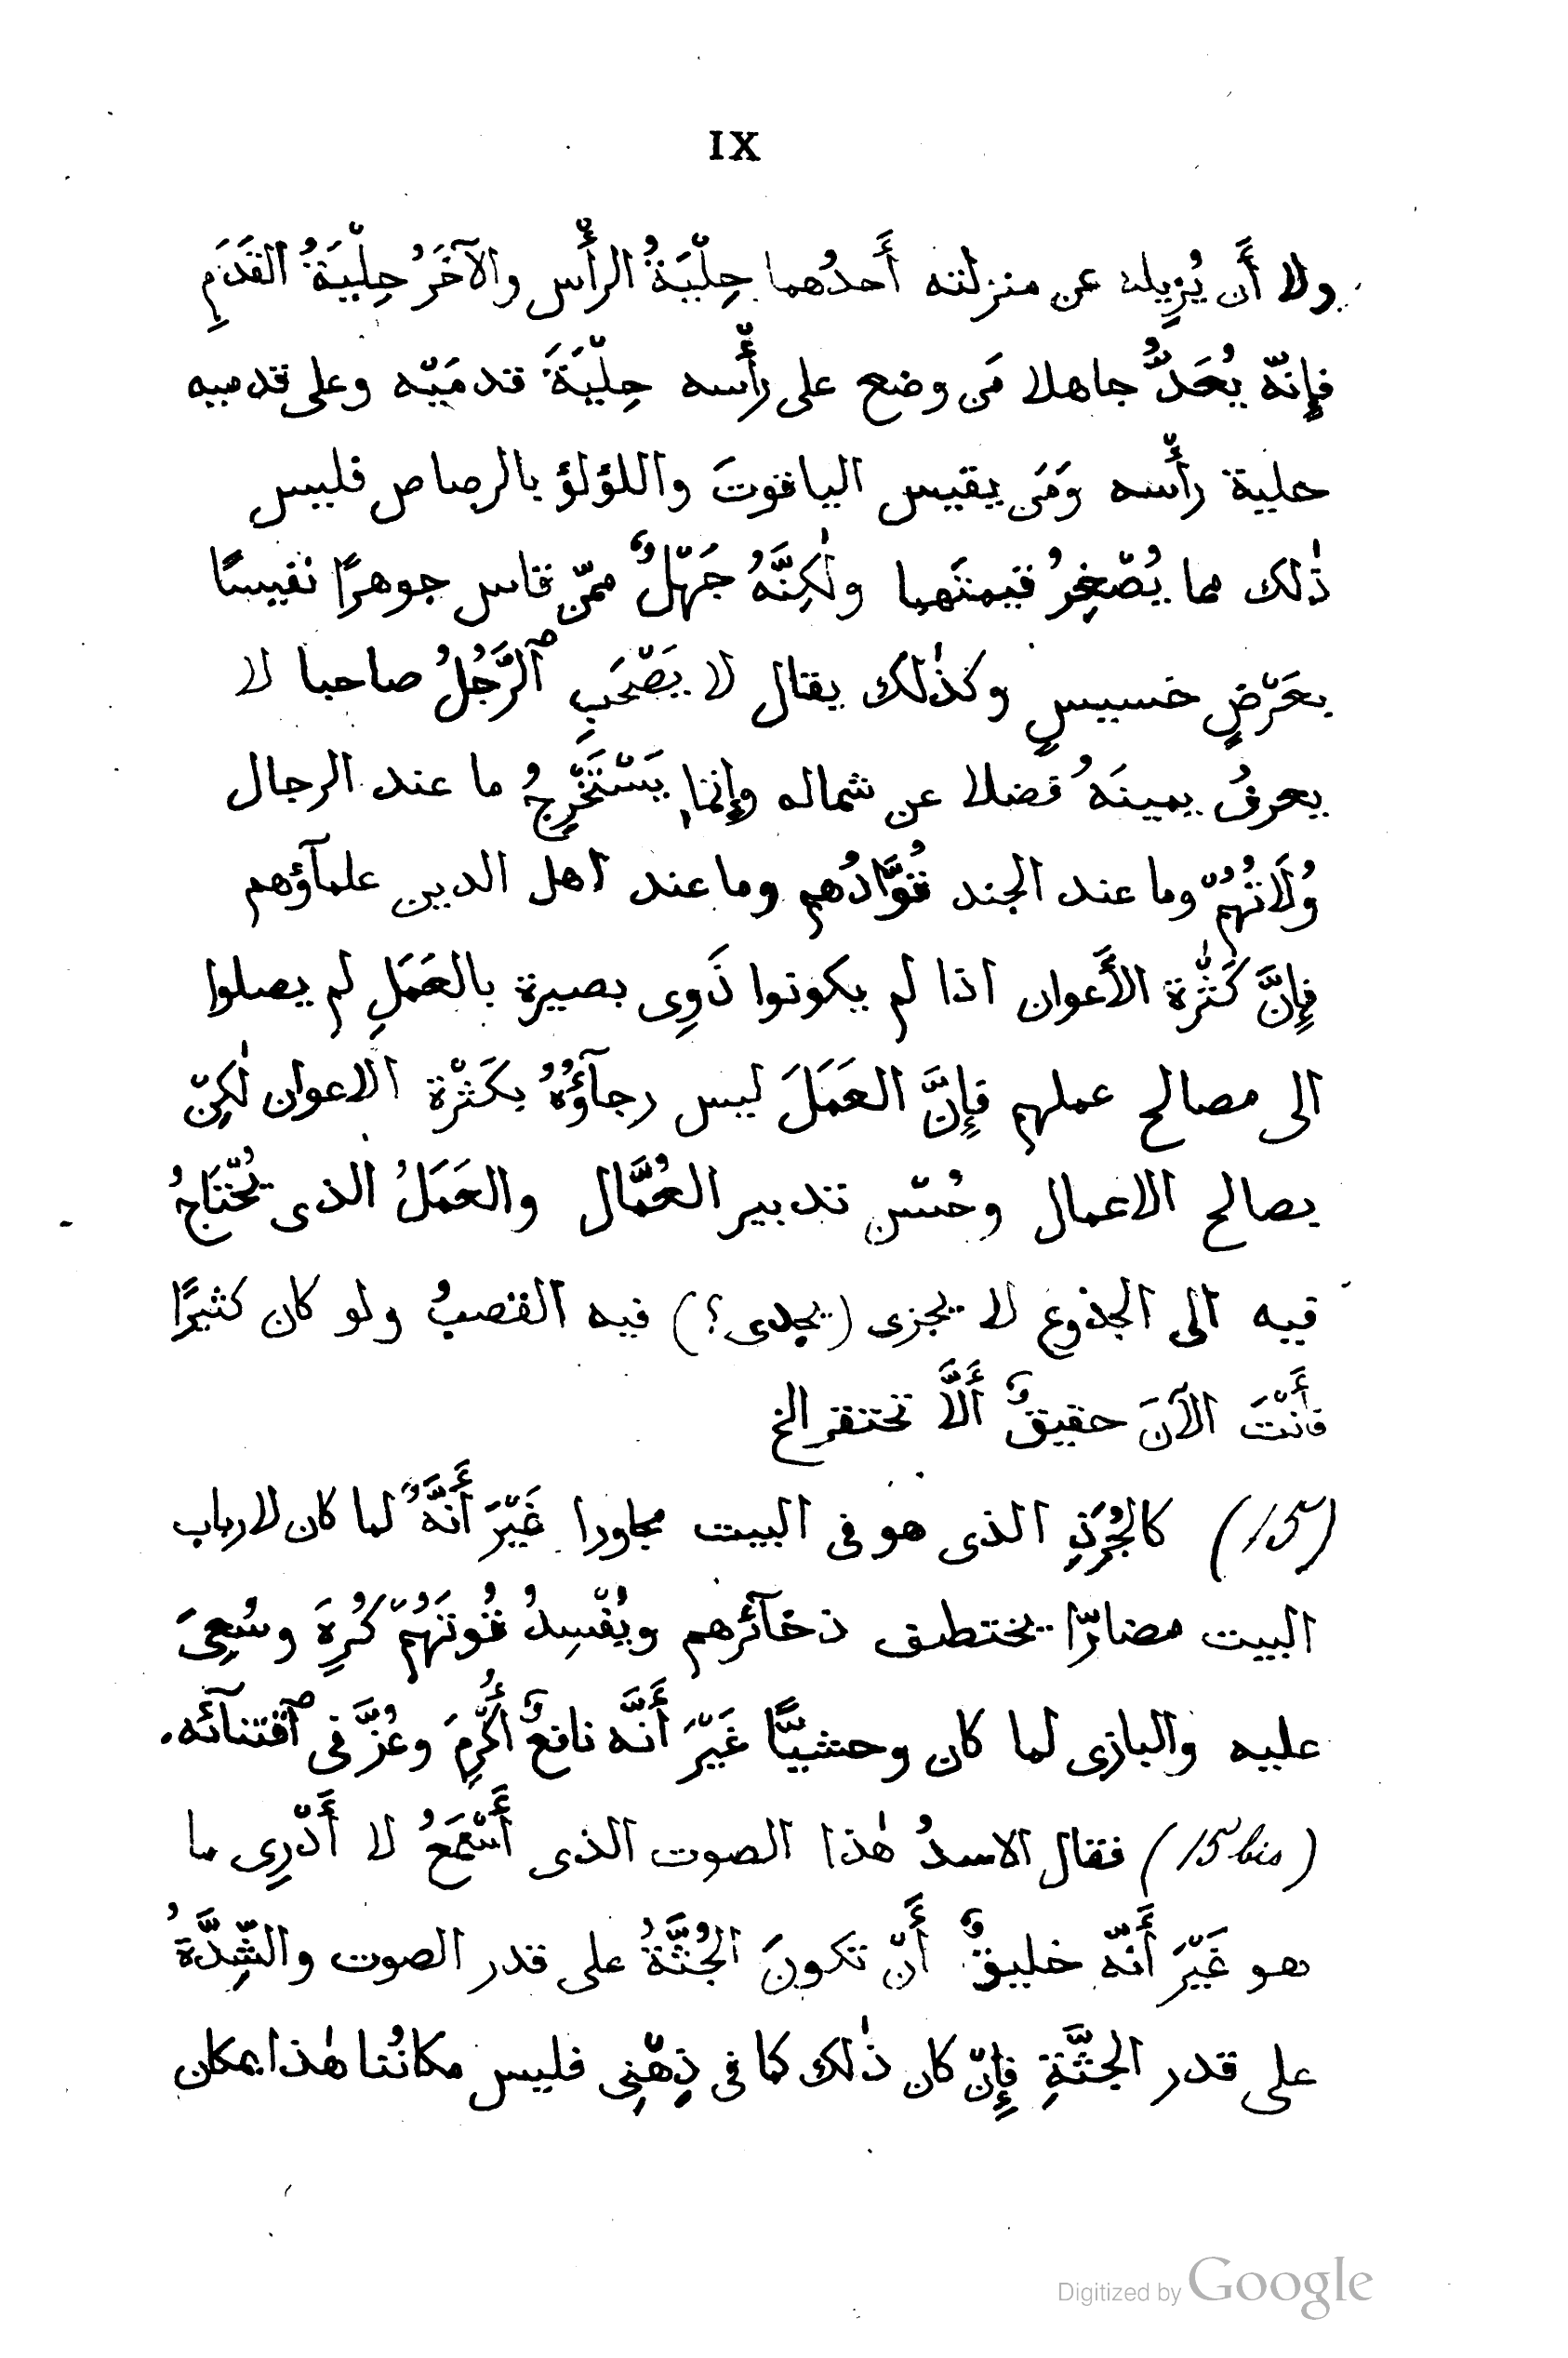 IX
ولا أَن يُزِيله عن منزلته أَحدُهما حِلْيَةُ الرأْس والآخَرُ حِلْيَةُ القَدَمِ
فإِنّه يُعَدُّ جاهلا مَن وضع على رأْسه حِلْيَةَ قدمَيْه وعلى قدميه
حلية رأْسه وَمَن يقيس الياقوتَ واللؤلؤ بالرصاص فليس
ذٰلك مما يُصْغِرُ قيمتَهما ولٰكِنَّهُ جَهْلٌ ممّن قاس جوهرًا نفيسًا
بعَرْضٍ خسيسٍ وكذٰلك يقال لا يَصْحَبِ ٱلرَّجُلُ صاحبا لا
يعرفُ يمينَهُ فضلا عن شماله وإِنما يَسْتَخْرِجُ ما عند الرجال
وُلَاتُهُمْ وما عند الجند قُوَّادُهم وما عند اهل الدين علمآؤهم
فإِنَّ كَثْرة الأَعوان اذا لم يكونوا ذَوِى بصيرة بالعَمَلِ لم يصلوا
الى مصالح عملهم فإِنَّ العَمَلَ ليس رجآؤُهُ بكَثْرة الاعوان لٰكِنْ
بصالح الاعمال وحُسْن تدبير العُمَّال والعَمَلُ الذى يُحْتَاجُ
فيه الى الجذوع لا يجزى (يجدى؟) فيه القصبُ ولو كان كثيرًا
فأَنْتَ الآنَ حقيقٌ أَلَّا تحتقر الخ
(15) كالجُرَذِ الذى هو فى البيت مجاورا غَيْرَ أَنَّهُ لما كان لارباب
البيت مضارّا يختطف ذخآئرهم ويُفْسِدُ قُوتَهُمْ كُرِهَ وسُعِىَ
عليه والبازى لما كان وحشيًّا غَيْرَ أَنَّه نافعٌ أُكْرِمَ وعُزَّ فى ٱقتنآئه.
(15 bis) فقال الاسدُ هٰذا الصوت الذى أَسْمَعُ لا أَدْرِى ما
هو غَيْرَ أَنّه خليقٌ أَنْ تكونَ الجُثَّةُ على قدر الصوت والشِّدَّةُ
على قدر الجثَّةِ فإِنْ كان ذٰلك كما فى ذِهْنِى فليس مكانُنا هٰذا بمكان
Digitized by Google